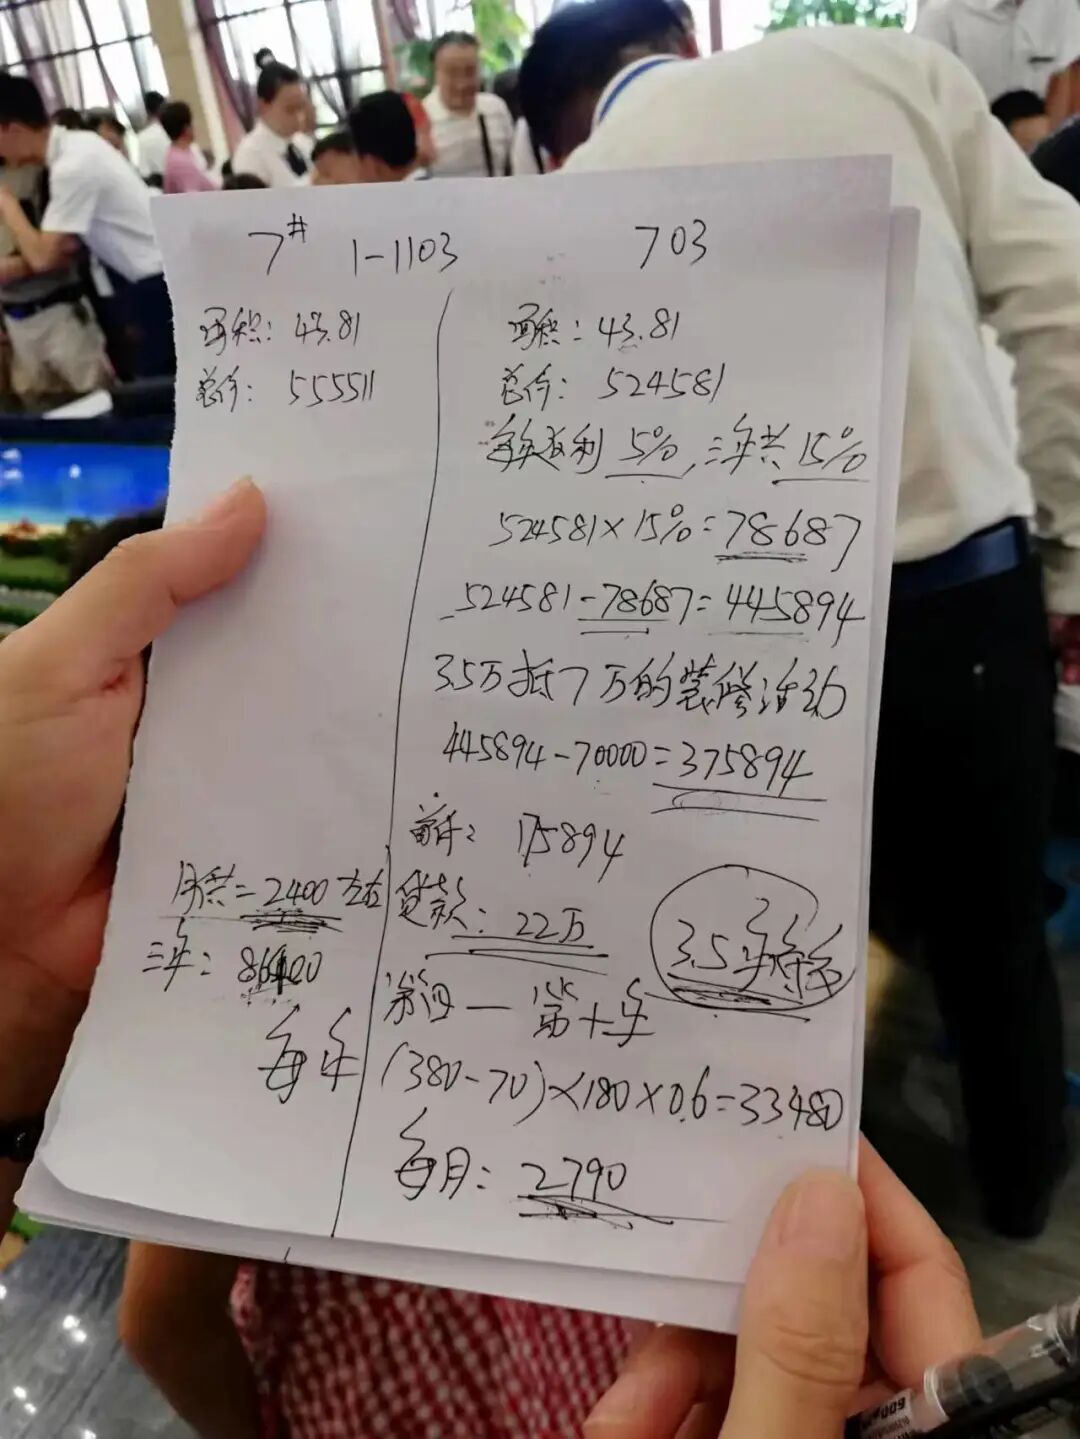 7# 1-1103
面积：43.81
总价：555511
703
面积：43.81
总价：524581
每年返利5%，三年共15%
524581×15%=78687
524581-78687=445894
3.5万抵7万的装修活动
445894-70000=375894
首付：175894
贷款：22万
月供=2400左右
三年：86400
3.5年
第四一第十年
每年(380-70)×180×0.6=33480
每月：2790